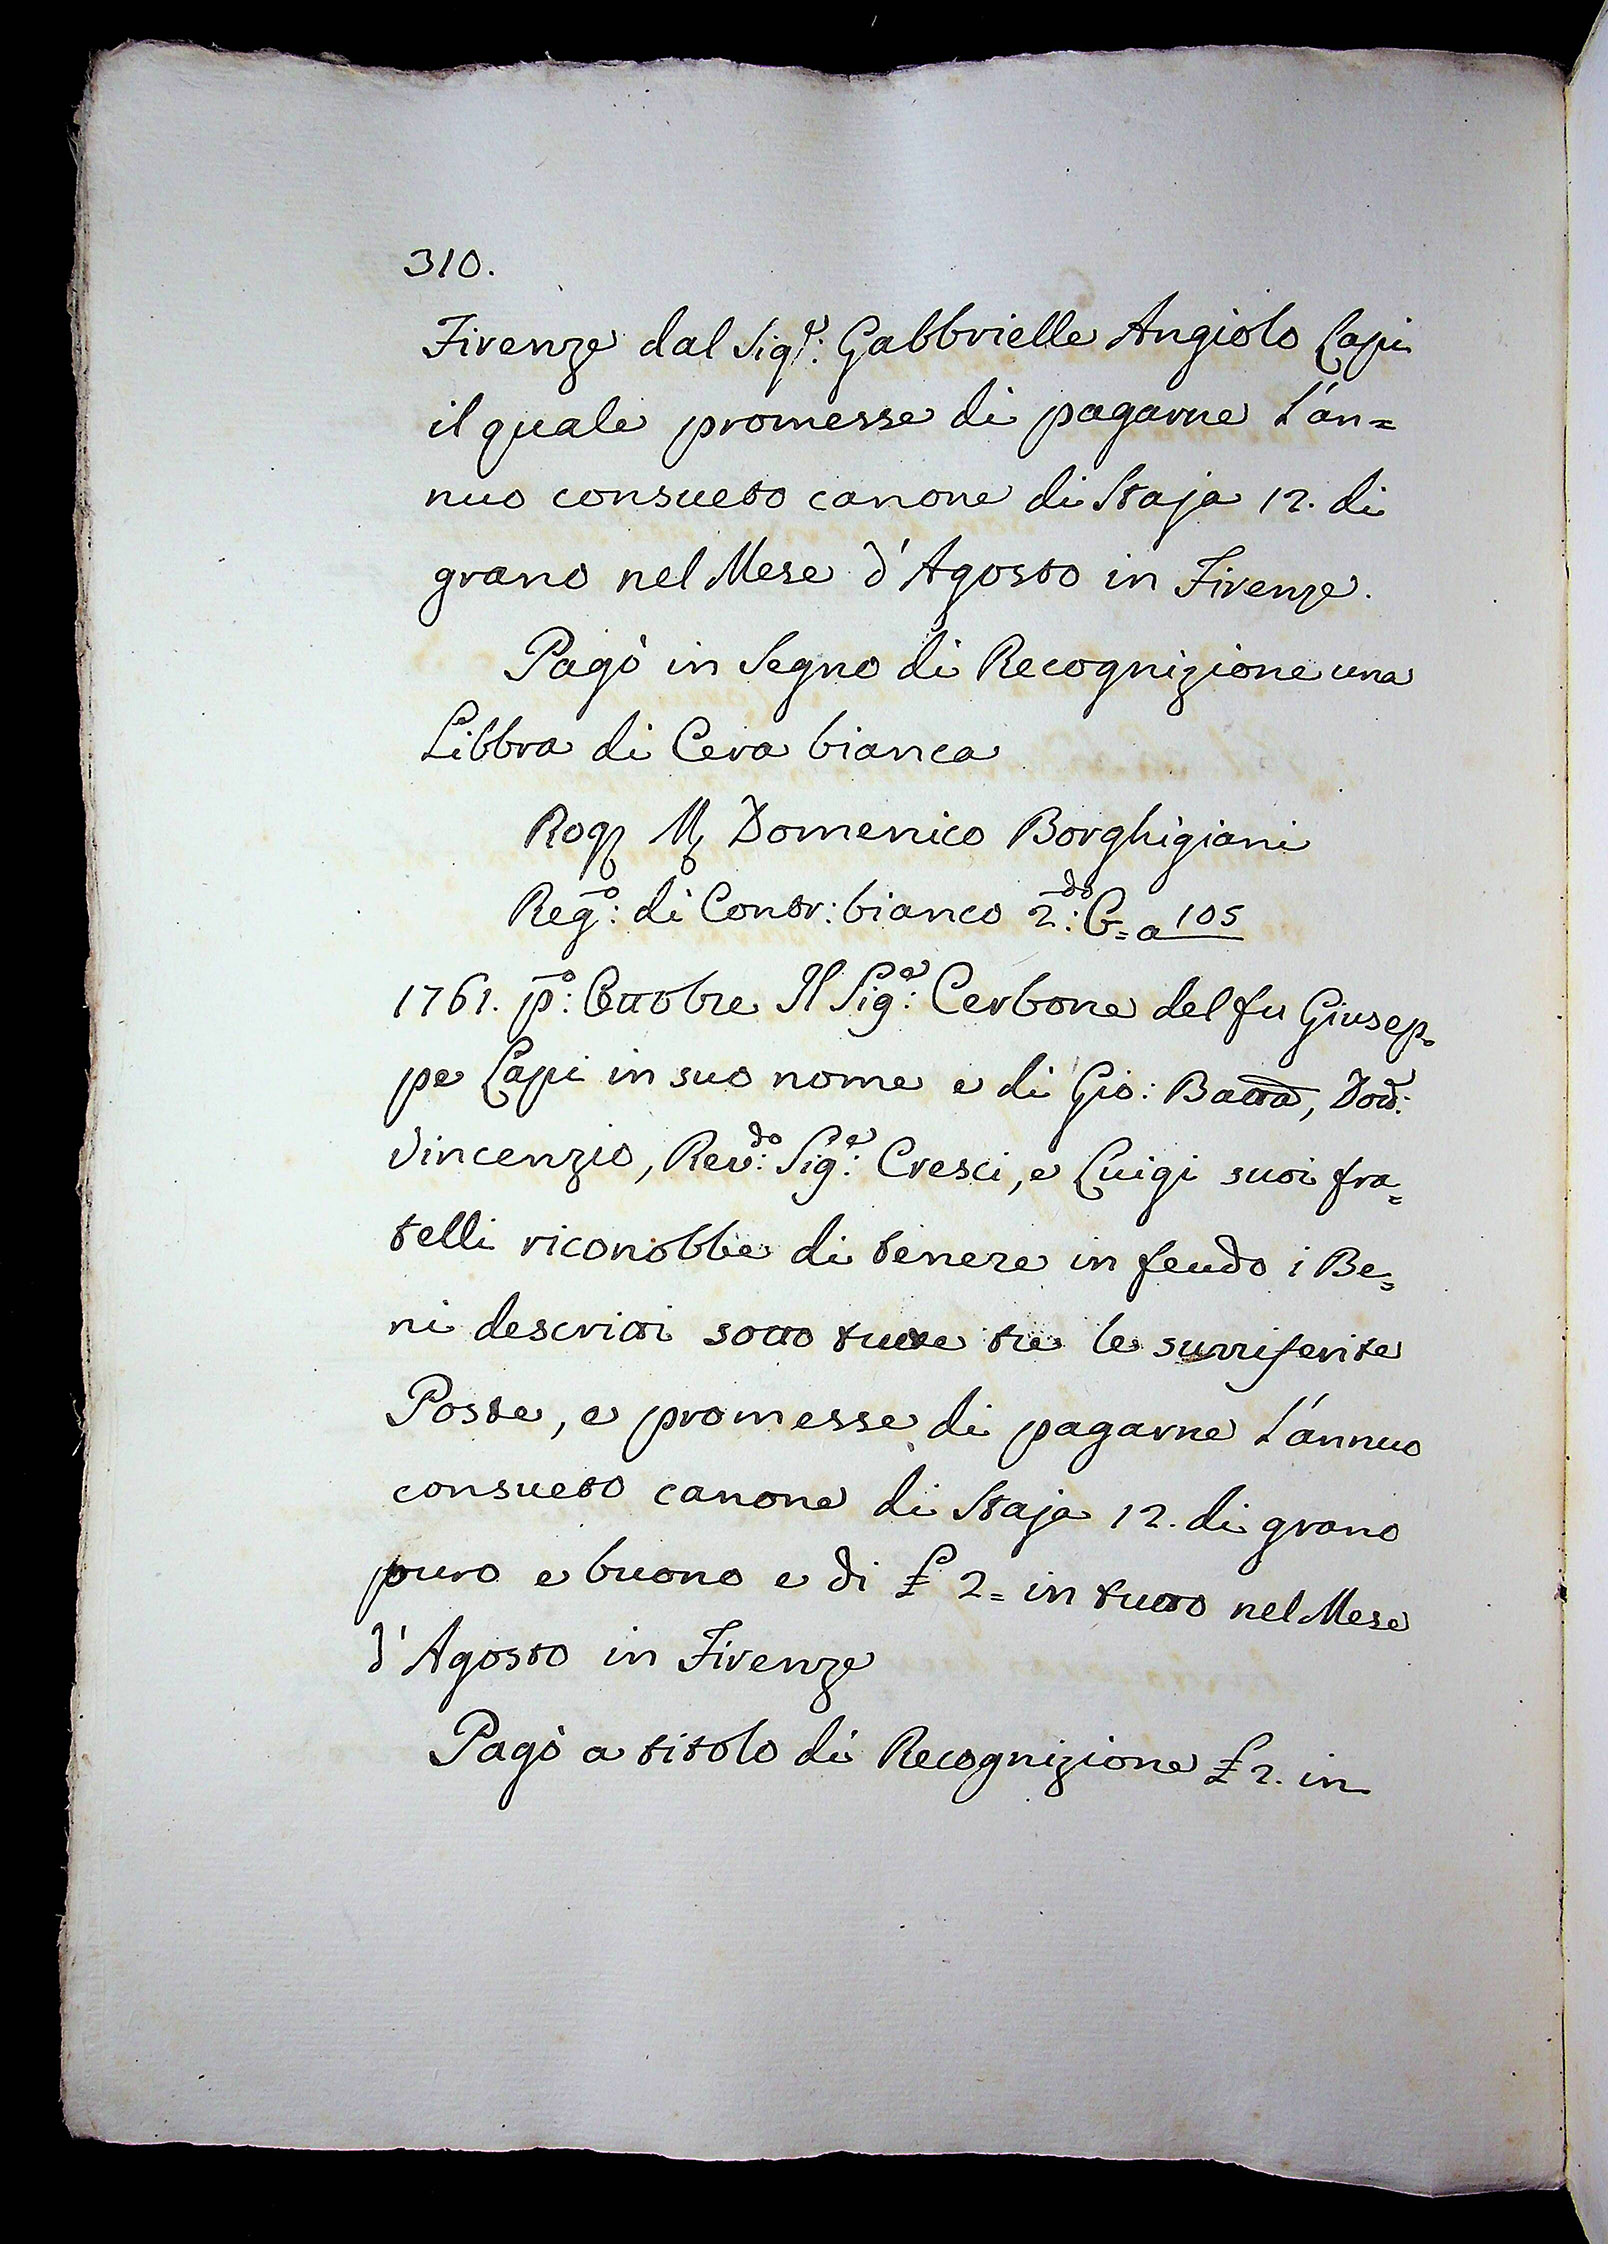 310.
Firenze dal Sig.r: Gabbrielle Angiolo Lapi
il quale promesse di pagarne l'an=
nuo consueto canone di Staja 12. di
grano nel Mese d'Agosto in Firenze.
Pagò in Segno di Recognizione una
Libbra di Cera bianca
Rog. M. Domenico Borghigiani
Reg.o: di Contr: bianco 2.do: C= a 105
1761. p.o: Ottobre Il Sig.e: Cerbone del fu Giusep=
pe Lapi in suo nome e di Gio: Batta, Dott.e:
Vincenzio, Rev.do: Sig.e: Cresci, e Luigi suoi fra=
telli riconobbe di tenere in feudo i Be=
ni descritti sotto tutte tre le surriferite
Poste, e promesse di pagarne l'annuo
consueto canone di Staja 12. di grano
puro e buono e di £ 2= in tutto nel Mese
d'Agosto in Firenze
Pagò a titolo di Recognizione £ 2. in